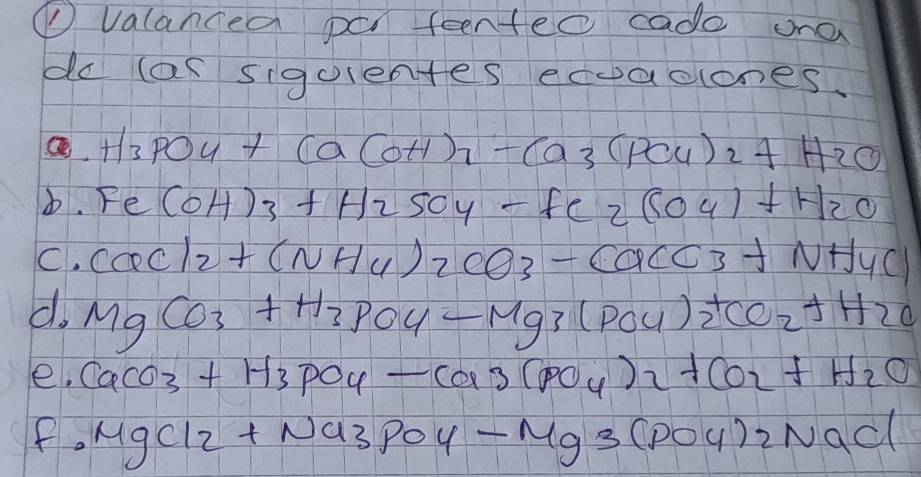 ① Valancea por teenteo cada una
de las siguientes ecuaciones.
a. H3PO4 + Ca(OH)2 - Ca3(PO4)2 + H2O
b. Fe(OH)3 + H2SO4 - Fe2(SO4) + H2O
c. CaCl2 + (NH4)2CO3 - CaCO3 + NH4Cl
d. MgCO3 + H3PO4 - Mg3(PO4)2 + CO2 + H2O
e. CaCO3 + H3PO4 - Ca3(PO4)2 + CO2 + H2O
f. MgCl2 + Na3PO4 - Mg3(PO4)2 NaCl